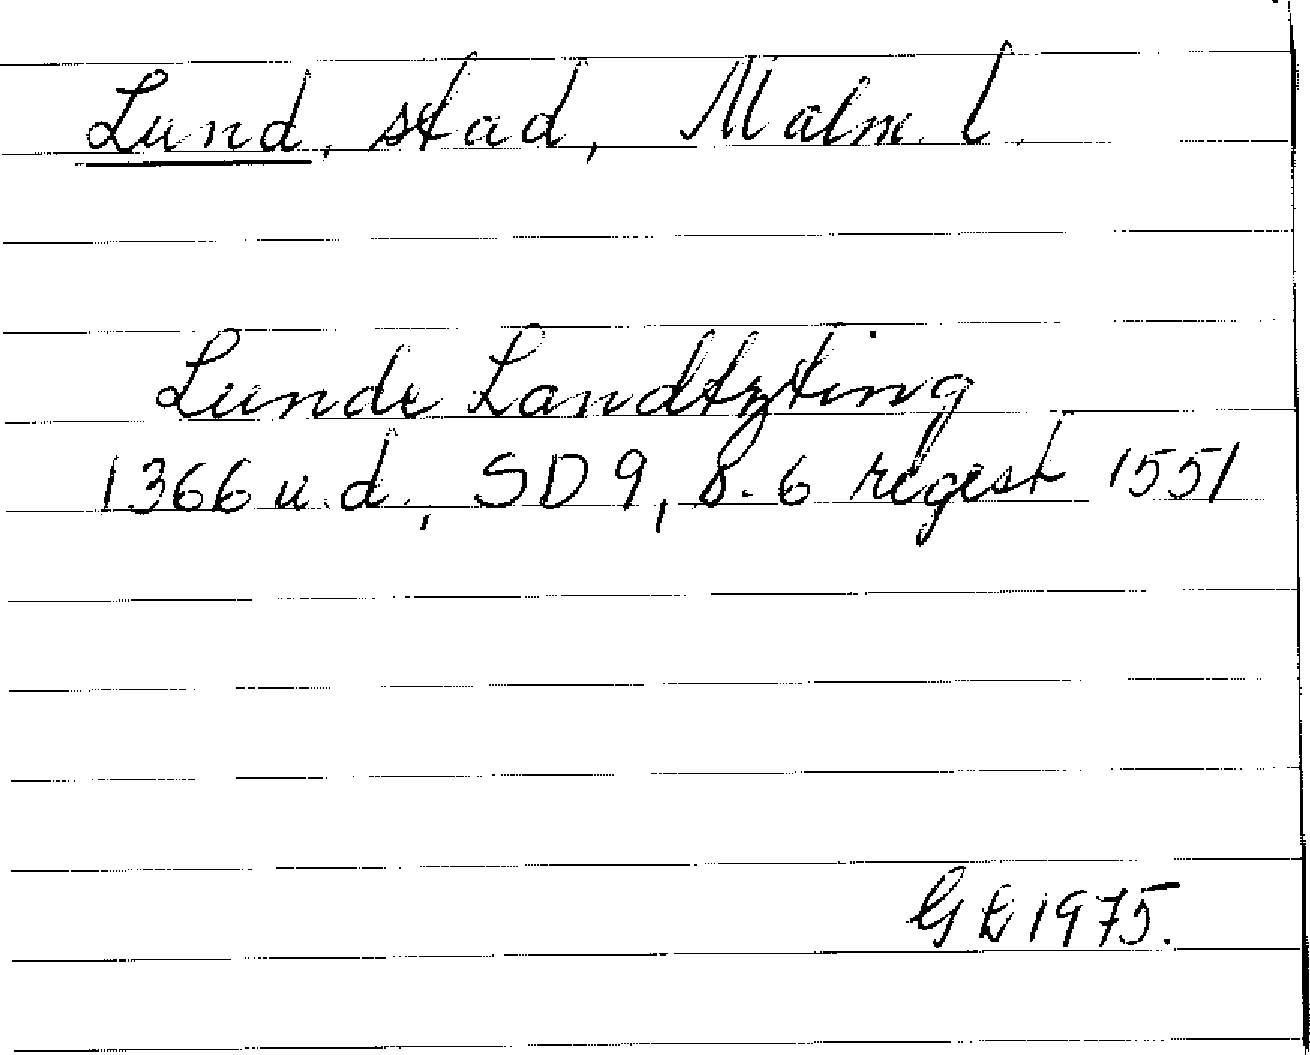 Lund, stad, Malm. l.
Lunde Landtzting
1366 u.d., SD 9, s. 6 regest 1551
GE 1975.